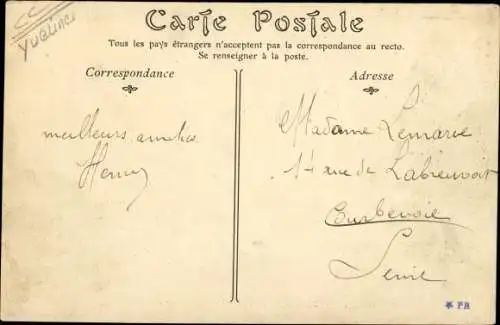 YVELINES
Carte Postale
Tous les pays étrangers n'acceptent pas la correspondance au recto.
Se renseigner à la poste.
Correspondance
Adresse
meilleurs amitiés
Henry
Madame Lemarie
14 rue de Labreuvoir
Courbevoie
Seine
✱ PR